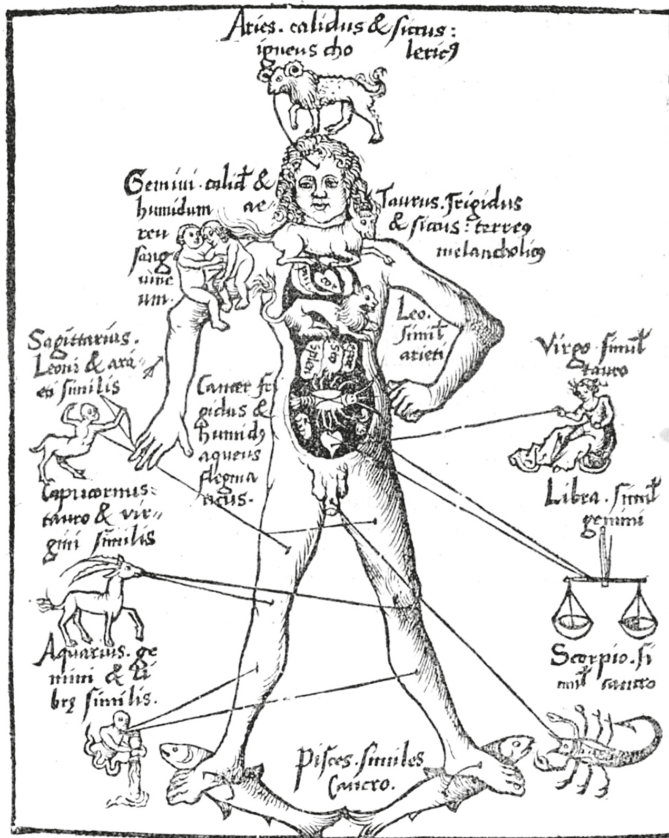 Aries. calidus & siccus:
igneus cho lericꝰ
Gemini. calid &
humidum ae
reu
sang
uine
um.
Taurus. Frigidus
& siccus: terreꝰ
melancholicꝰ
Leo.
simil
arieti
Sagittarius.
Leoni & ari-
eti similis
Cancer fri
gidus &
humidꝰ
aqueus
flegma
ticus.
Virgo simil
tauro
Capricornus
tauro & vir-
gini similis
Libra. simil
gemini
Aquarius. ge
mini & li
brę similis.
Scorpio. si
mil cancro
Pisces. similes
Cancro.